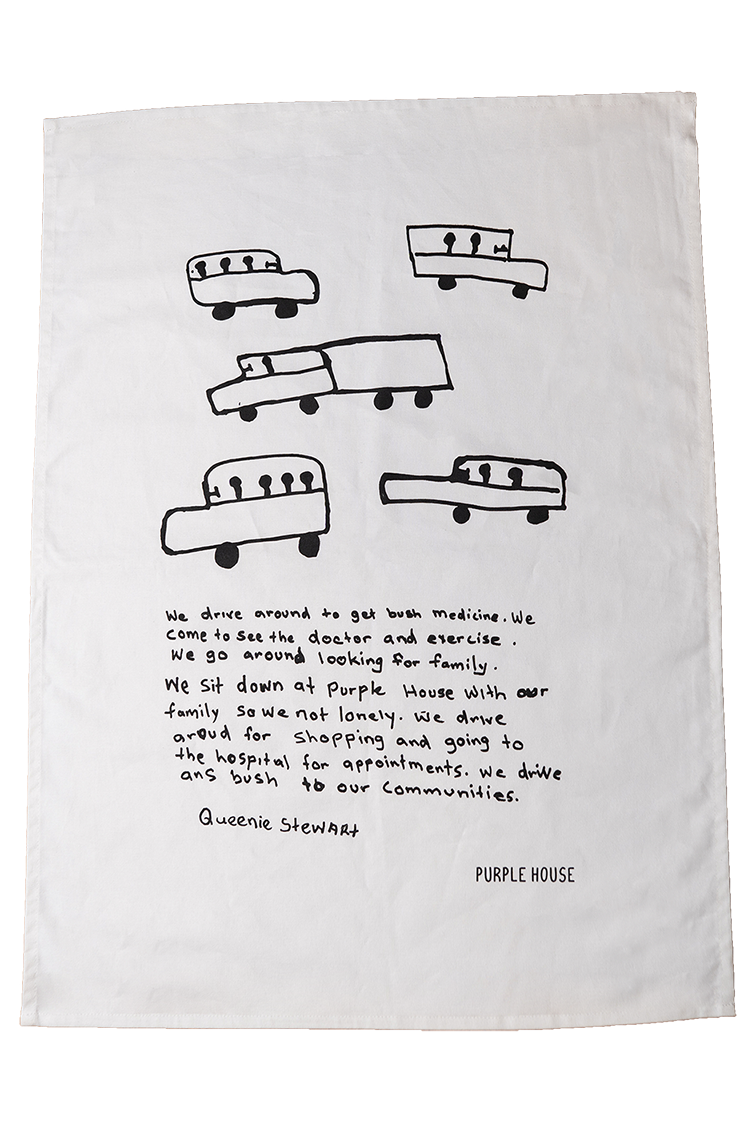 We drive around to get bush medicine. We
come to see the doctor and exercise .
We go around looking for family .
We sit down at Purple House with our
family so we not lonely. We drive
aroud for shopping and going to
the hospital for appointments. We drive
ans bush to our communities.
Queenie Stewart
PURPLE HOUSE